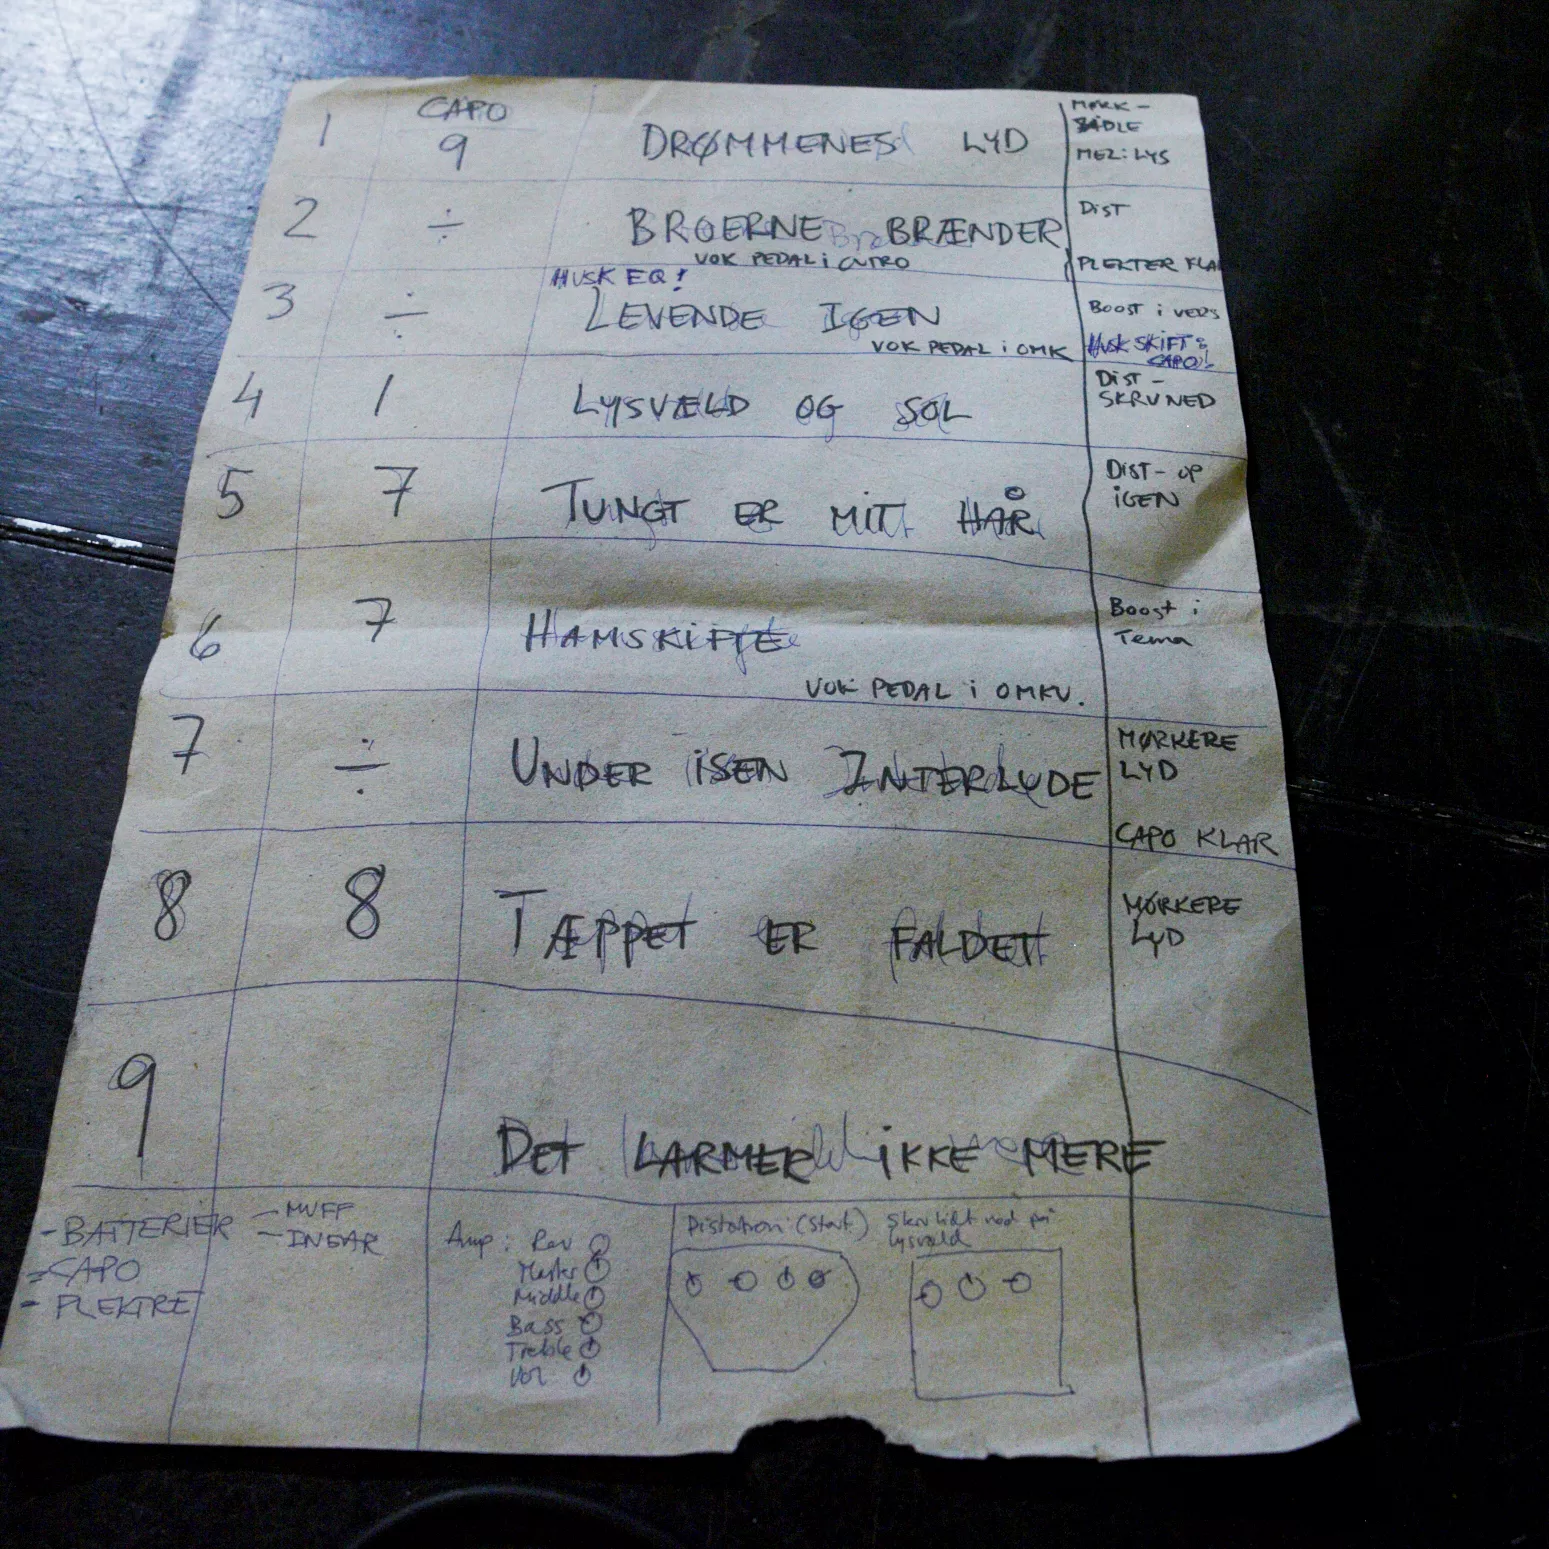 1 CAPO 9 DRØMMENES LYD MØRK -
MEL: LYS
2 ÷ BROERNE BRÆNDER DIST
VOK PEDAL i OUTRO PLEKTER KLA
HUSK EQ!
3 ÷ LEVENDE IGEN BOOST i VERS
VOK PEDAL i OMK HUSK SKIFT
CAPO!
4 1 LYSVÆLD OG SOL DIST -
SKRU NED
5 7 TUNGT ER MIT HÅR DIST - OP
IGEN
6 7 HAMSKIFTE Boost i
Tema
VOK PEDAL i OMKV.
7 ÷ UNDER ISEN INTERLUDE MØRKERE
LYD
CAPO KLAR
8 8 TÆPPET ER FALDET MØRKERE
LYD
9 DET LARMER IKKE MERE
- BATTERIER
- CAPO
- PLEKTRE
- MUFF
- INEAR
Amp: Rev
Master
Middle
Bass
Treble
Vol
Distortion (Start)
Skru lidt ned på
lysvæld